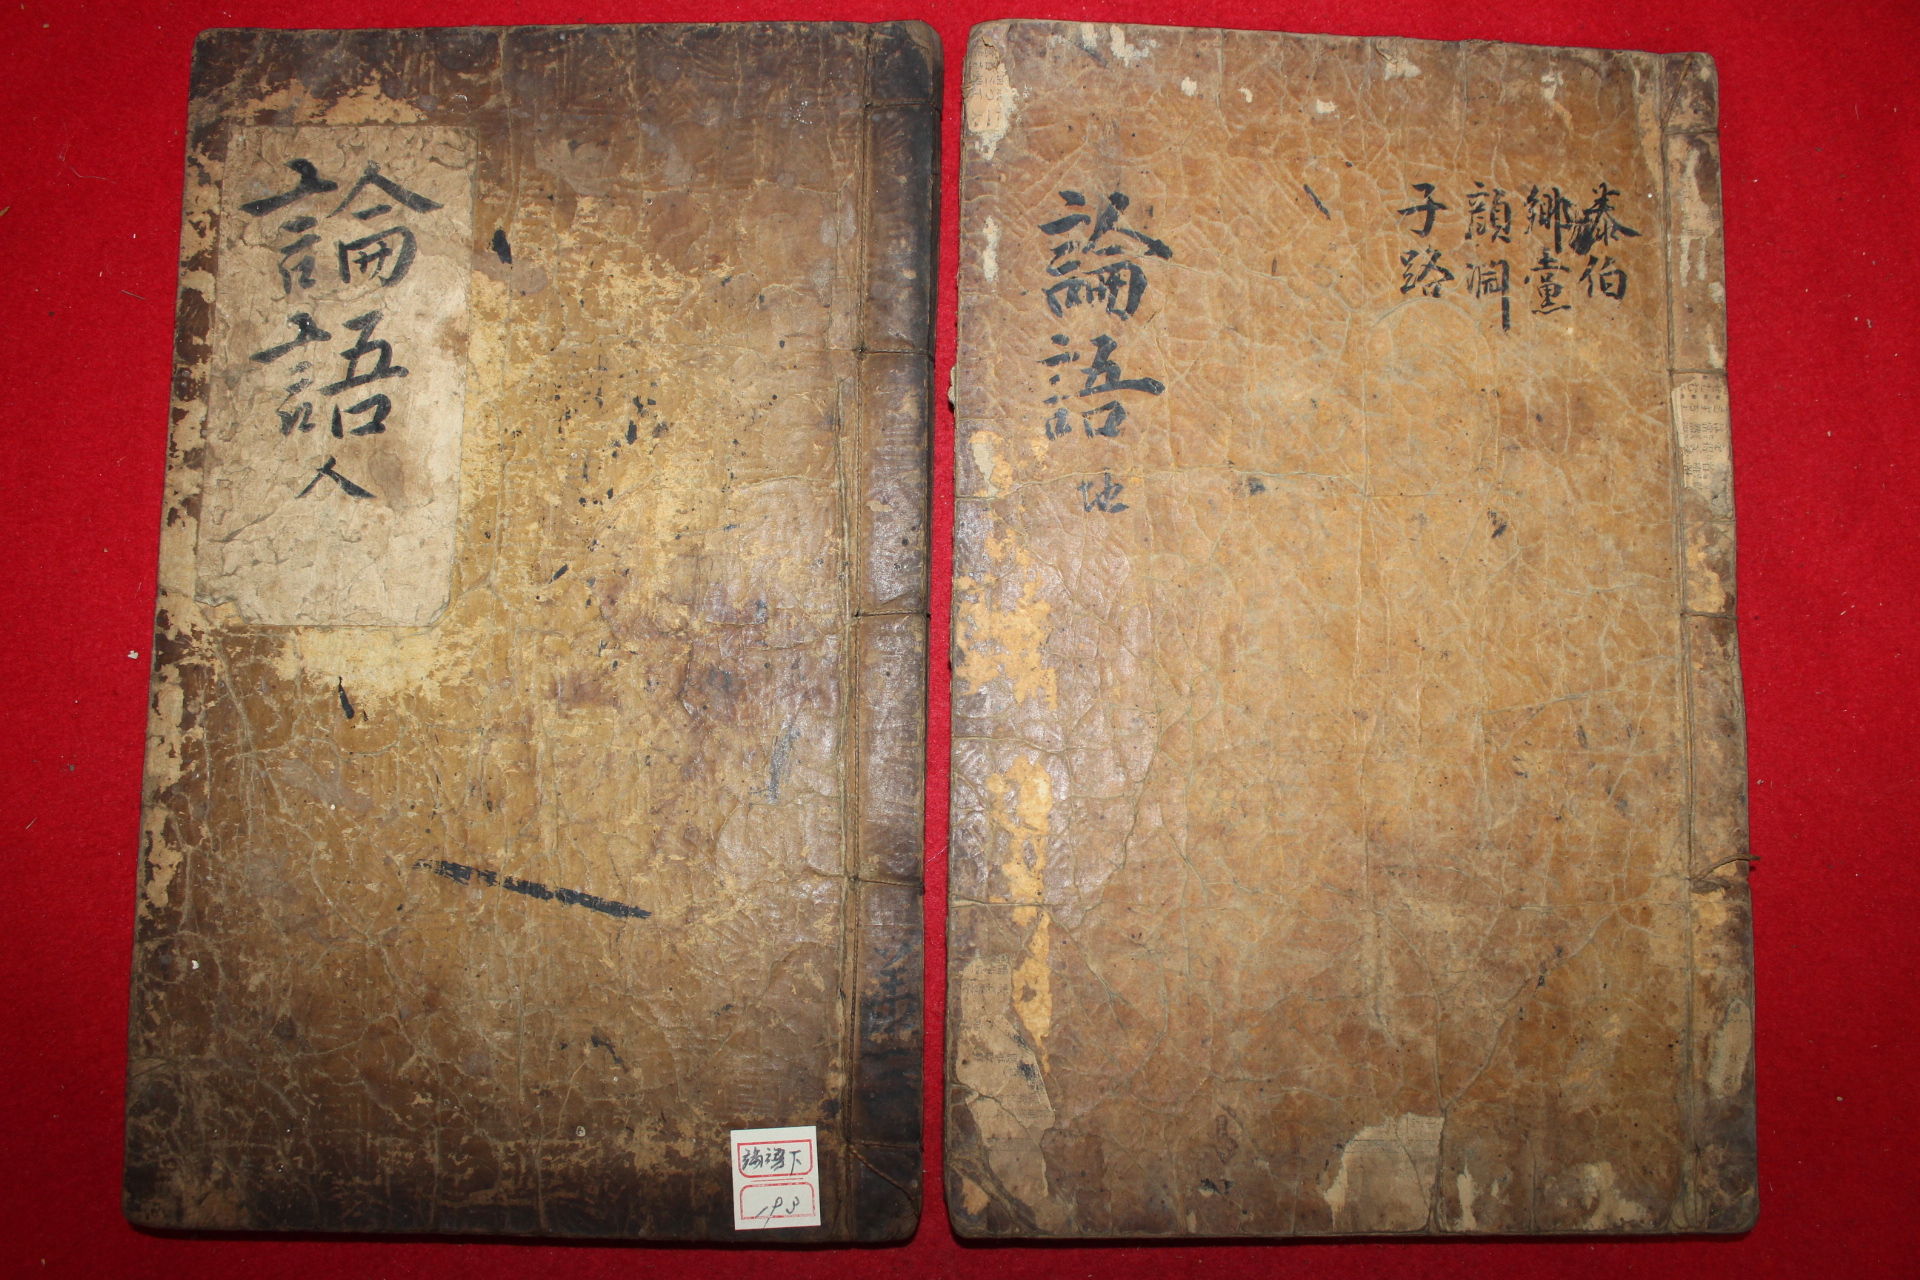 論語人
論語下
193
泰伯
鄉黨
顔淵
子路
論語地